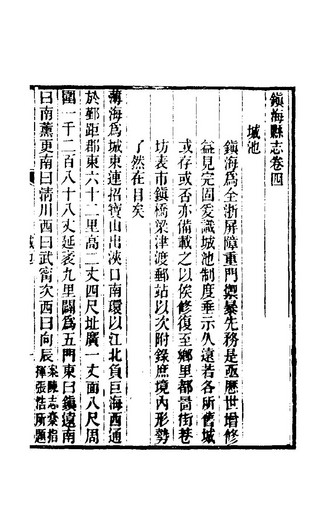 鎮海縣志卷四
城池
鎮海為全浙屏障重門禦暴先務是亟歷世增修
益見完固爰識城池制度垂示久遠若各所舊城
或存或否亦備載之以俟修復至鄉里都啚街巷
坊表市鎮橋梁津渡郵站以次附錄庶境內形勢
了然在目矣
薄海為城東連招寶山出浹口南環以江北負巨海西通
於鄞距郡東六十二里高二丈四尺址廣一丈面八尺周
圍一千二百八十八丈延袤九里闢為五門東曰鎮遠南
曰南薰更南曰清川西曰武甯次西曰向辰案陳志臺指
揮張浩所題